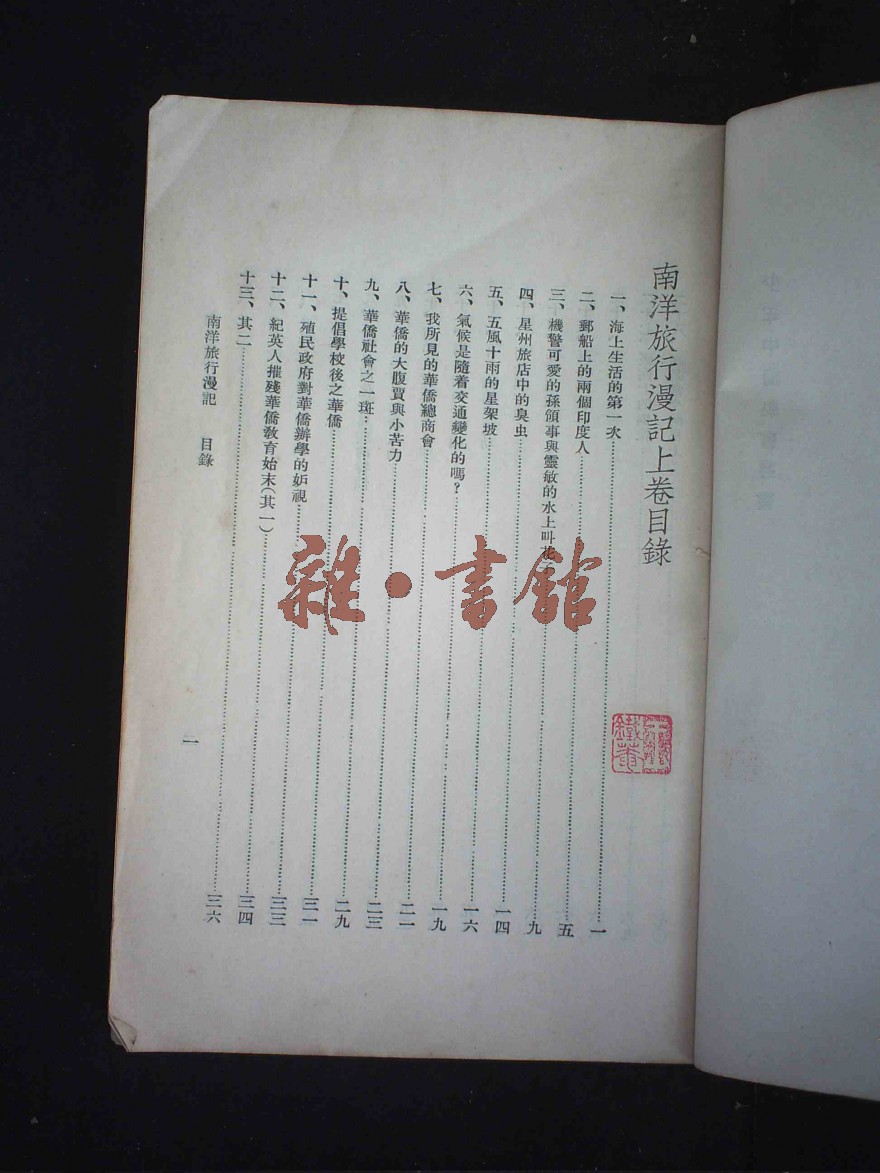 南洋旅行漫記上卷目錄
一、海上生活的第一次……一
二、郵船上的兩個印度人……五
三、機警可愛的孫領事與靈敏的水上叫花……九
四、星州旅店中的臭虫……一四
五、五風十雨的星架坡……一六
六、氣候是隨着交通變化的嗎？……一九
七、我所見的華僑總商會……二一
八、華僑的大腹賈與小苦力……二三
九、華僑社會之一斑……二九
十、提倡學校後之華僑……三一
十一、殖民政府對華僑辦學的妒視……三三
十二、紀英人摧殘華僑敎育始末（其一）……三四
十三、其二……三六
南洋旅行漫記　目錄
一
雜·書館